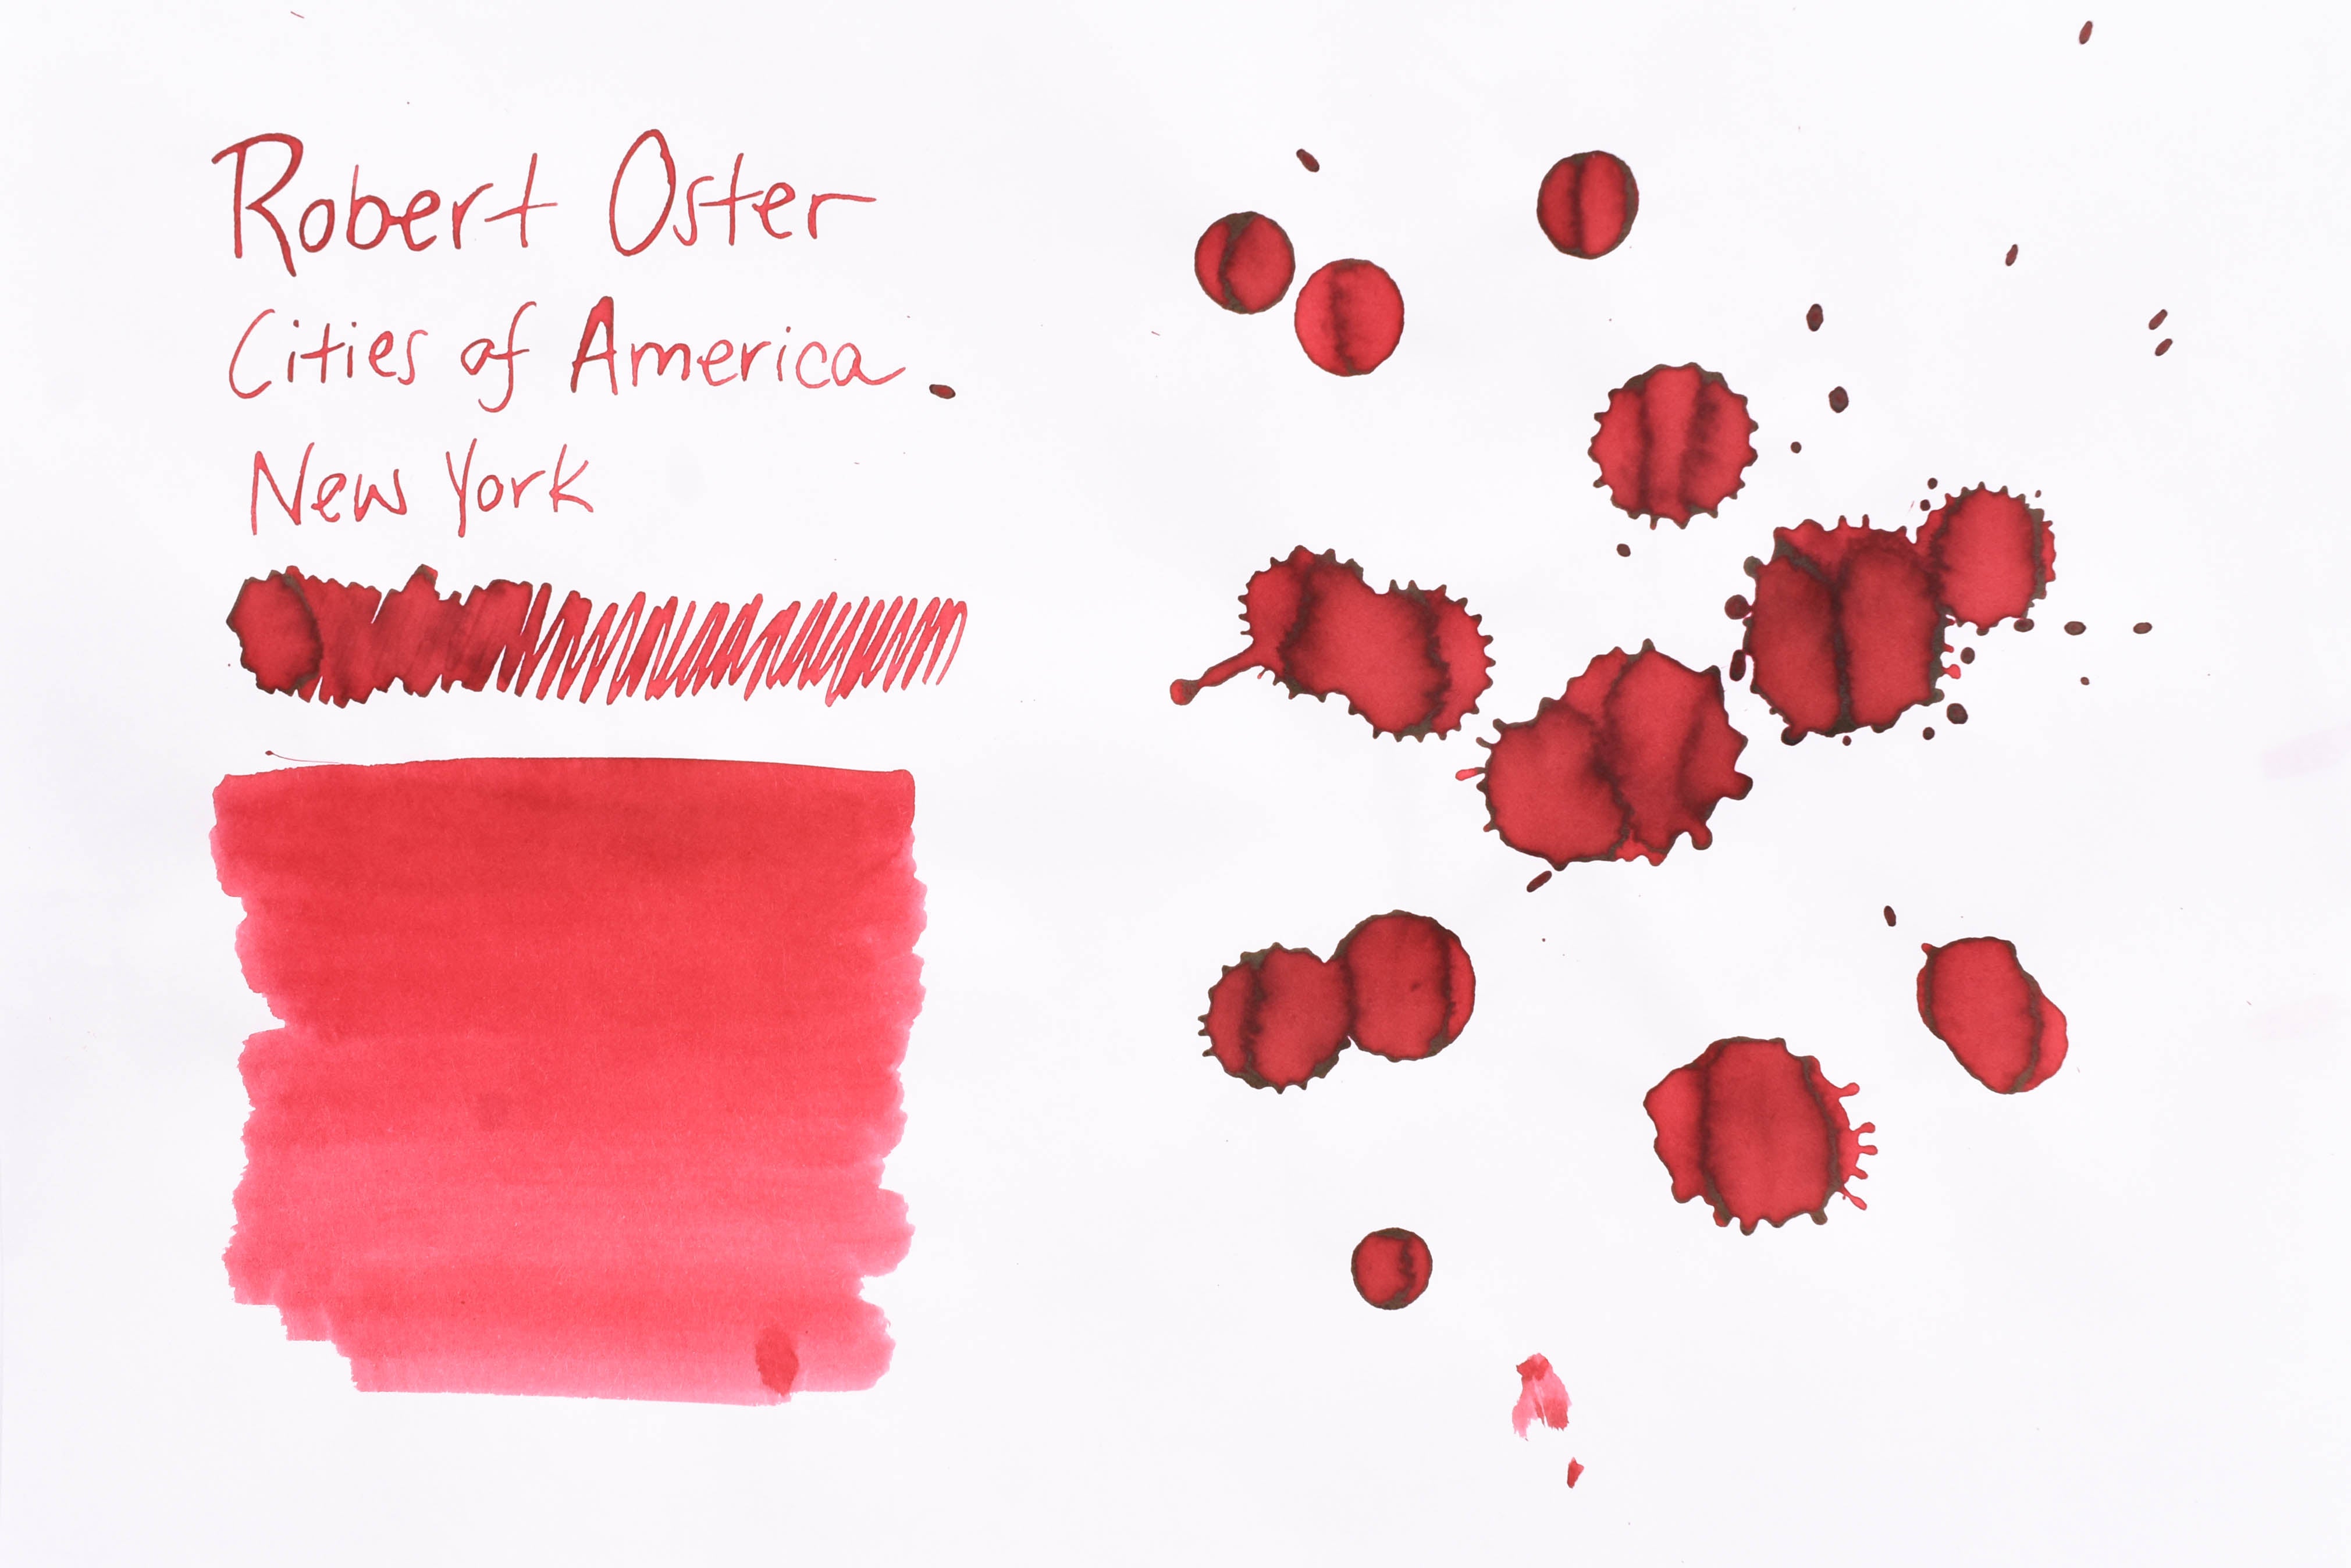 Robert Oster
Cities of America
New York